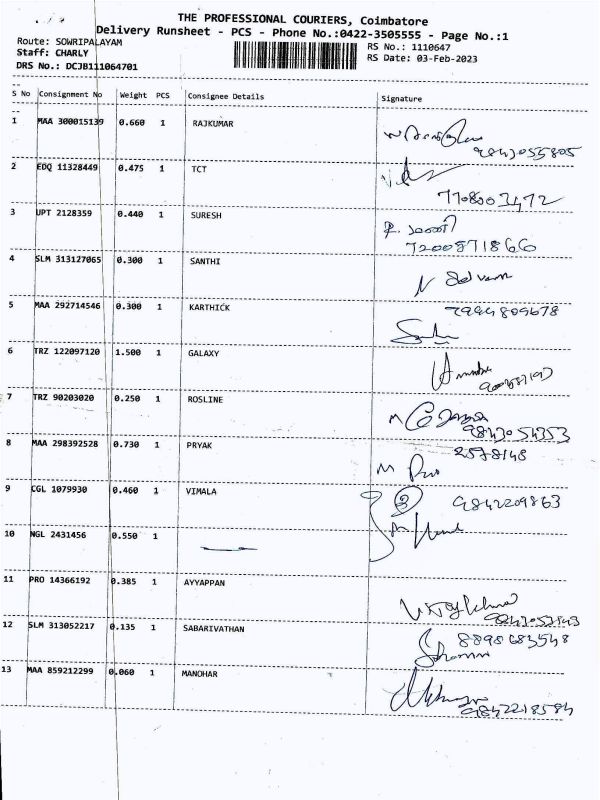 THE PROFESSIONAL COURIERS, Coimbatore
Delivery Runsheet - PCS - Phone No.:0422-3505555 - Page No.:1
Route: SOWRIPALAYAM
Staff: CHARLY
DRS No.: DCJB111064701
RS No.: 1110647
RS Date: 03-Feb-2023
S No Consignment No Weight PCS Consignee Details Signature
1 MAA 300015139 0.660 1 RAJKUMAR
9843055805
2 EDQ 11328449 0.475 1 TCT
7708003472
3 UPT 2128359 0.440 1 SURESH
7200871866
4 SLM 313127065 0.300 1 SANTHI
N Selvam
5 MAA 292714546 0.300 1 KARTHICK
7994809678
6 TRZ 122097120 1.500 1 GALAXY
7 TRZ 90203020 0.250 1 ROSLINE
9843054353
8 MAA 298392528 0.730 1 PRYAK
2578148
9 CGL 1079930 0.460 1 VIMALA
9842209863
10 NGL 2431456 0.550 1
11 PRO 14366192 0.385 1 AYYAPPAN
12 SLM 313052217 0.135 1 SABARIVATHAN
8898683548
13 MAA 859212299 0.060 1 MANOHAR
9842218584